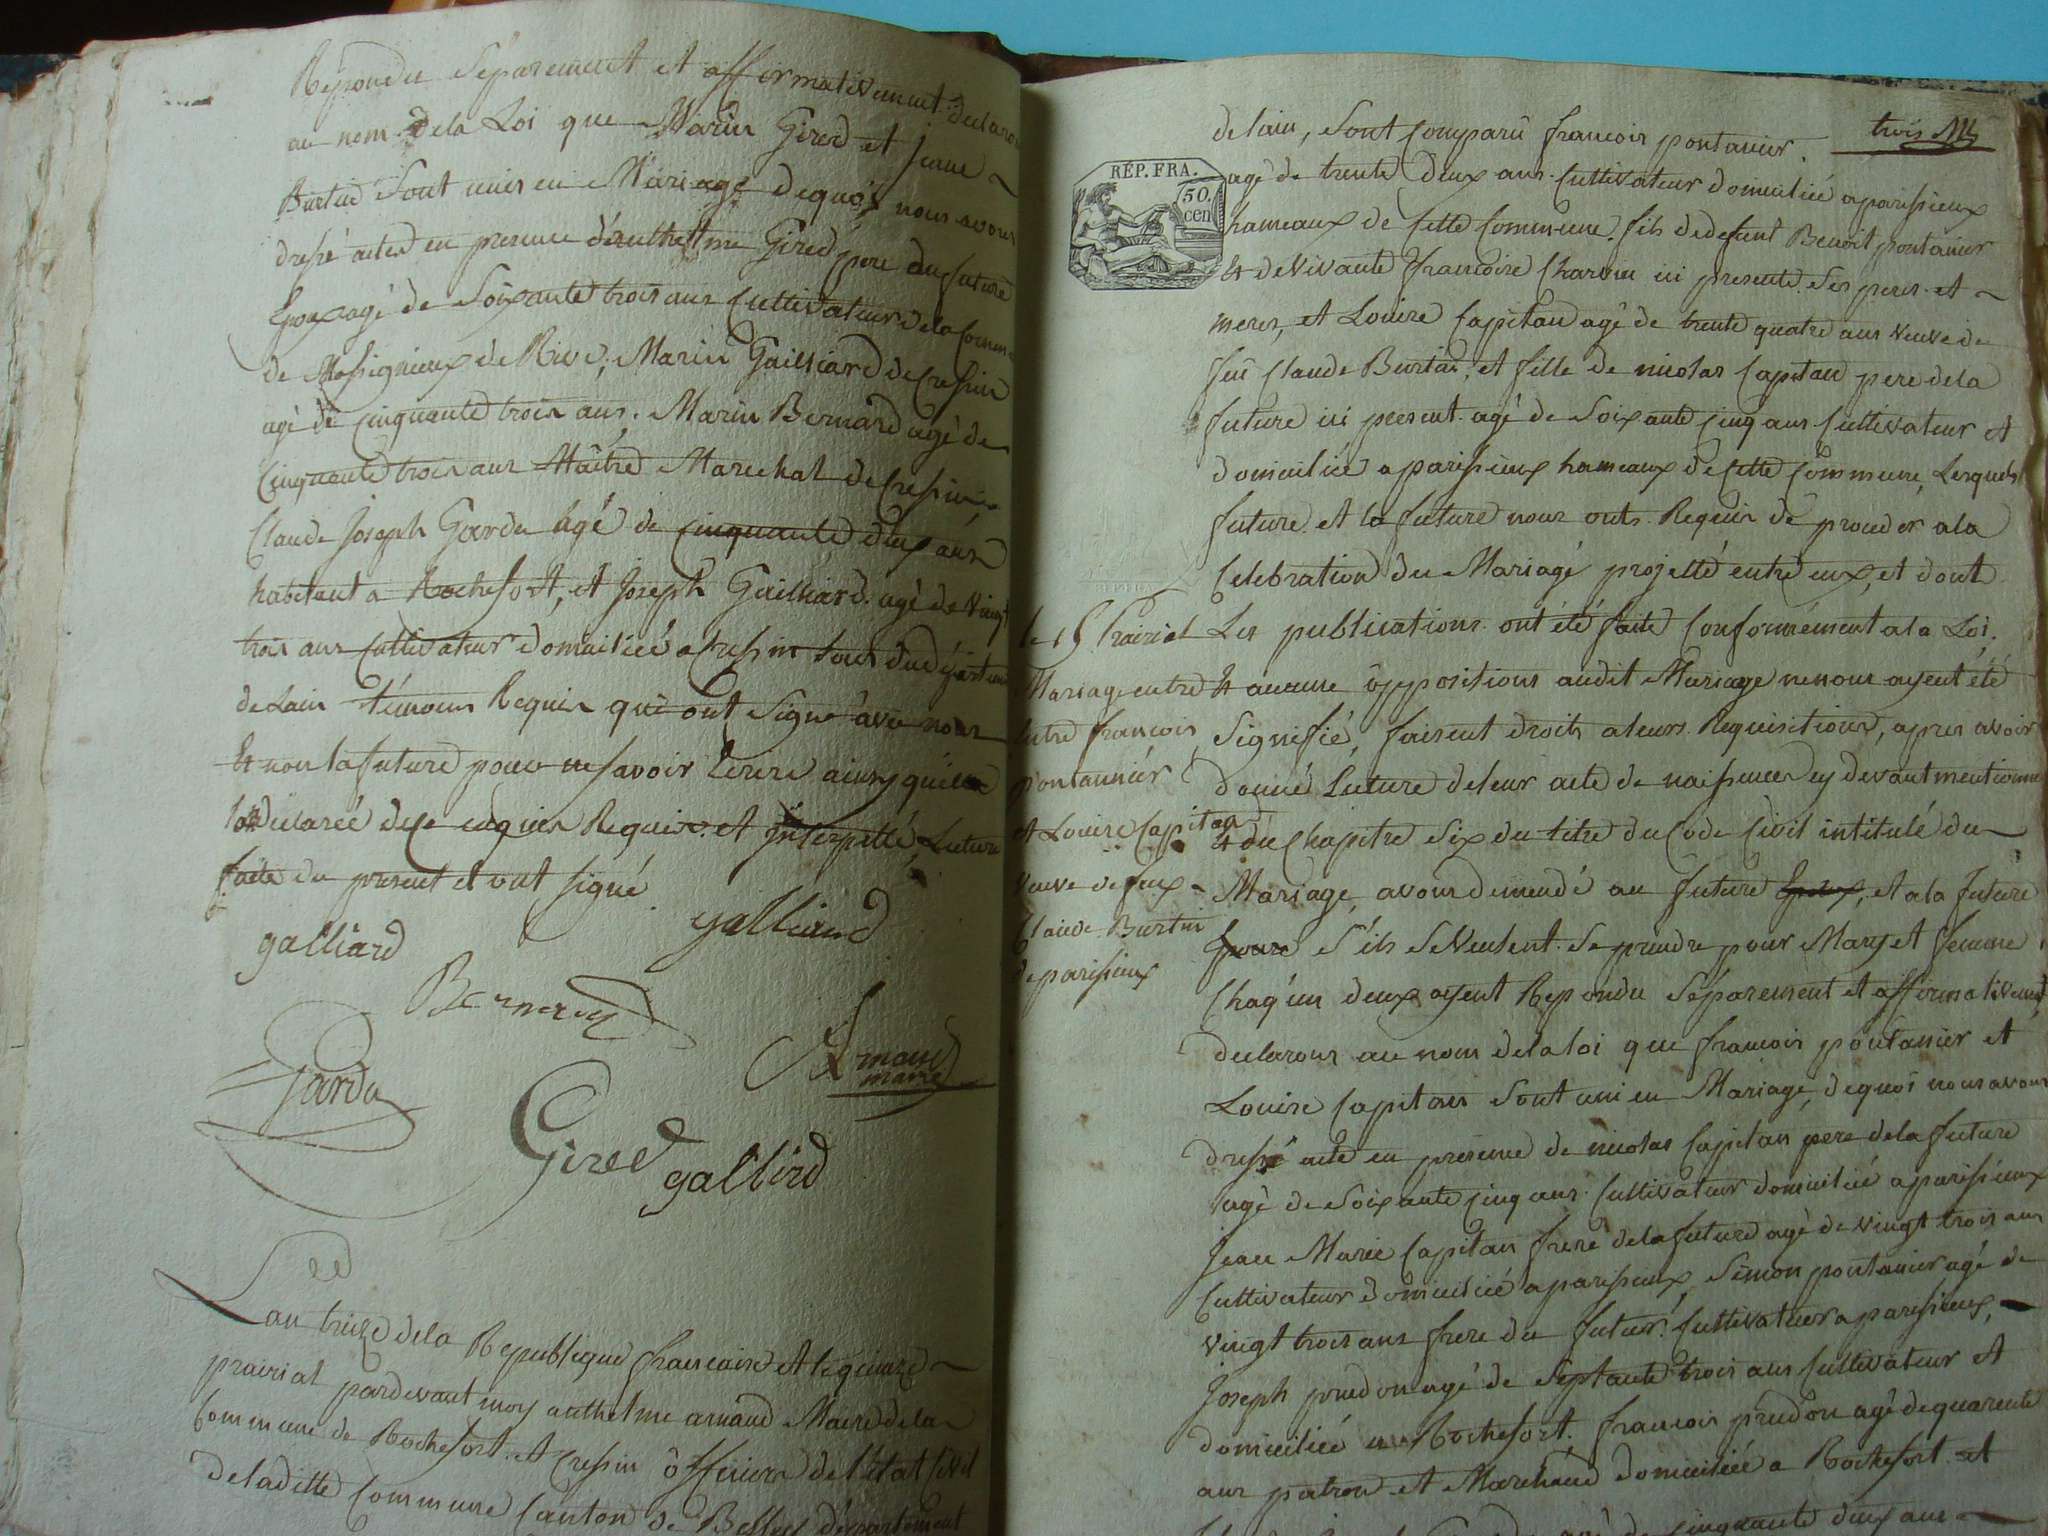 Répondu Séparement et affirmativement. declarons
au nom. De la Loi que Marin Gired et jeanne
Burtin Sont unis en Mariage dequoi nous avons
dressé acte en presence d'anthelme Gired pere du future
Epoux agé de Soixante trois ans Cultivateur de la Commune
de Massignieux de Rive, Marin Gailliard de Cressin
agé de cinquante trois ans. Marin Bernard agé de
Cinquante trois ans Maître Marechal de Cressin
Claude Joseph Gardu âgé de cinquante deux ans
habitant a Rochefort, et Joseph Gailliard. agé de vingt
trois ans Cultivateur domicilié a Cressin tous du départemt
de Lain témoins Requis qui ont Signé avec nous
Et non la future pour ne savoir Ecrire ainsy quelle
la déclarée de ce enquis Requise. et Interpellé, Lecture
faite du present et ont signé
galliard galliard
Bernard
Armand
maire
Gardu
Gired
gallird
Lan treize de la Republique francaise et le quinze
prairial pardevant moy anthelme arnaud Maire de la
Commune de Rochefort. et Cressin officier de l'état Civil
de la ditte Commune Canton de Belley département
trois
delain, Sont Comparû francois pontanier.
REP. FRA.
50.
cen
agé de trente Deux ans. Cultivateur domicilié a parissieux
hameaux de Cette Commune. fils de defunt Benoit pontanier
Et de Vivante francoise Charvin ici presente. Ses peres et
meres, et Louise Capitan agé de trente quatre ans veuve de
feu Claude Burtin, et fille de nicolas Capitan pere de la
future ici present. agé de Soixante cinq ans Cultivateur et
domicilié a parissieux hameaux de Cette Commune, Lesquels
future. et la future nous onts. Requis de proceder a la
Celebration du Mariage projetté entre eux, et dont
Les publications. ont été faite Conformément a la Loi.
Et aucune oppositions audit Mariage ne nous ayent été
Signifié, faisent droits a leurs Requisitions, apres avoir
donné Lecture de leur acte de naissance cy devant mentionné
Et du Chapitre Six du titre du Code Civil intitulé du
Mariage, avons demendé au future Epoux, et a la future
Epouse S'ils Se Veulent. Se prendre pour Mary et femme
Chaq'un deux ayent Repondu Séparement et affirmativement
declarons au nom de la loi que francois pontanier et
Louise Capitan Sont uni en Mariage, de quoi nous avons
dressé acte en presence de nicolas Capitan pere de la future
agé de Soixante cinq ans. Cultivateur domicilié a parissieux
Jean Marie Capitan frere de la future agé de vingt trois ans
Cultivateur domicilié a parissieux, Simon pontanier agé de
vingt trois ans frere du futur. Cultivateur a parissieux,
Joseph prudon agé de Septante trois ans Cultivateur et
domicilié a Rochefort. francois prudon agé de quarente
ans patron et Marchand domicilié a Rochefort et
cinquante deux ans
le 15 Prairial
Mariage entre
Entre francois
pontannier
et Louise Capitan
veuve de feux
Claude Burtin
de parissieux